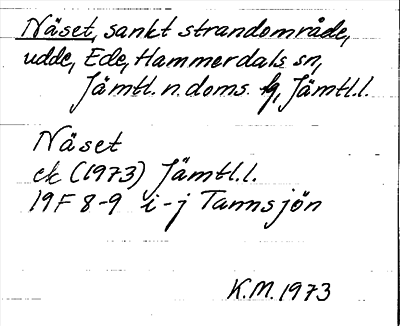 Näset, sankt strandområde,
udde, Ede, Hammerdals sn,
Jämtl. n. doms. tg, Jämtl.l.
Näset
ek (1973) Jämtl.l.
19F 8-9 i-j Tannsjön
K.M. 1973